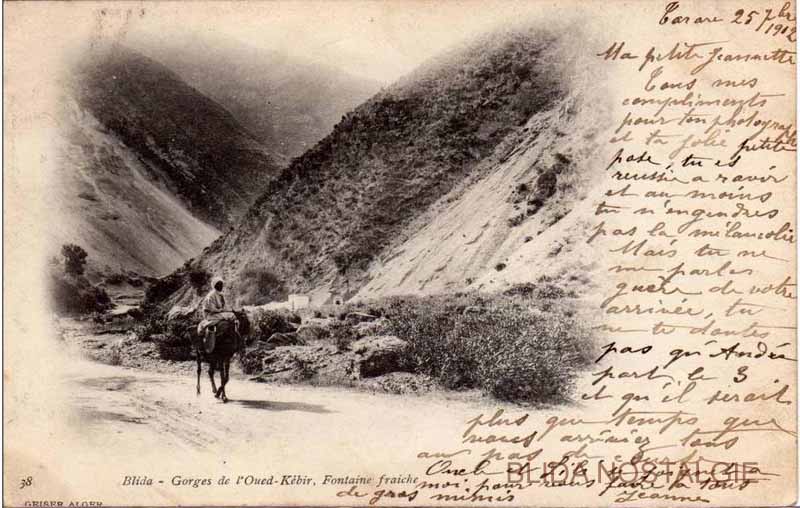 Tarare 25 7bre
1902
Ma petite Jeannette
Tous mes
compliments
pour ton photographe
et ta jolie petite
pose, tu es
reussie a ravir
et au moins
tu n'engendres
pas la mélancolie
Mais tu ne
me parles
guère de votre
arrivée, tu
ne te doutes
pas qu'André
part le 3
et qu'il serait
plus que temps que
vous arriviez tous
au pas de
moi pour vous faire à tous
de gros mimis Jeanne
38
Blida - Gorges de l'Oued-Kébir, Fontaine fraîche
GEISER ALGER
BLIDA NOSTALGIE